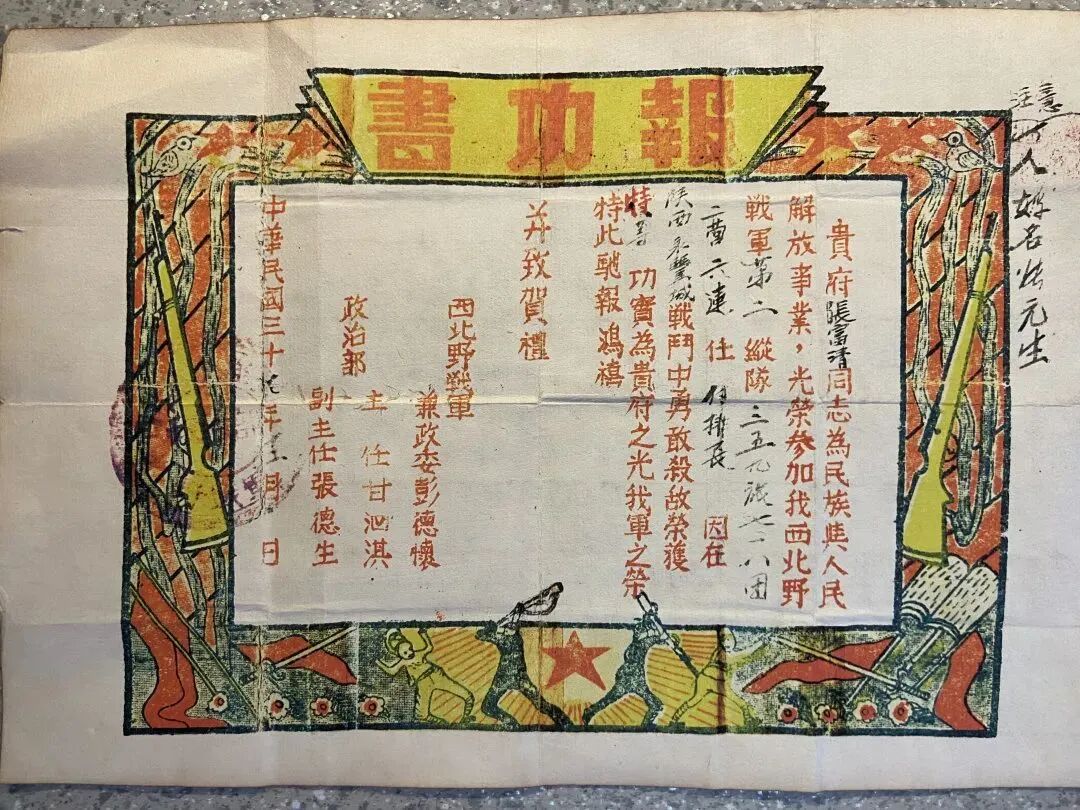 報功書
注意
人姓名
貴府張富清同志為民族與人民
解放事業，光榮參加我西北野
戰軍第二縱隊三五九旅七一八团
二营六連任付排長 因在
陝西永豐城戰鬥中勇敢殺敵榮獲
特等功實為貴府之光我軍之榮
特此馳報鴻禧
并致賀禮
西北野戰軍
兼政委彭德懷
政治部
主任甘泗淇
副主任張德生
中華民國三十七年十二月 日